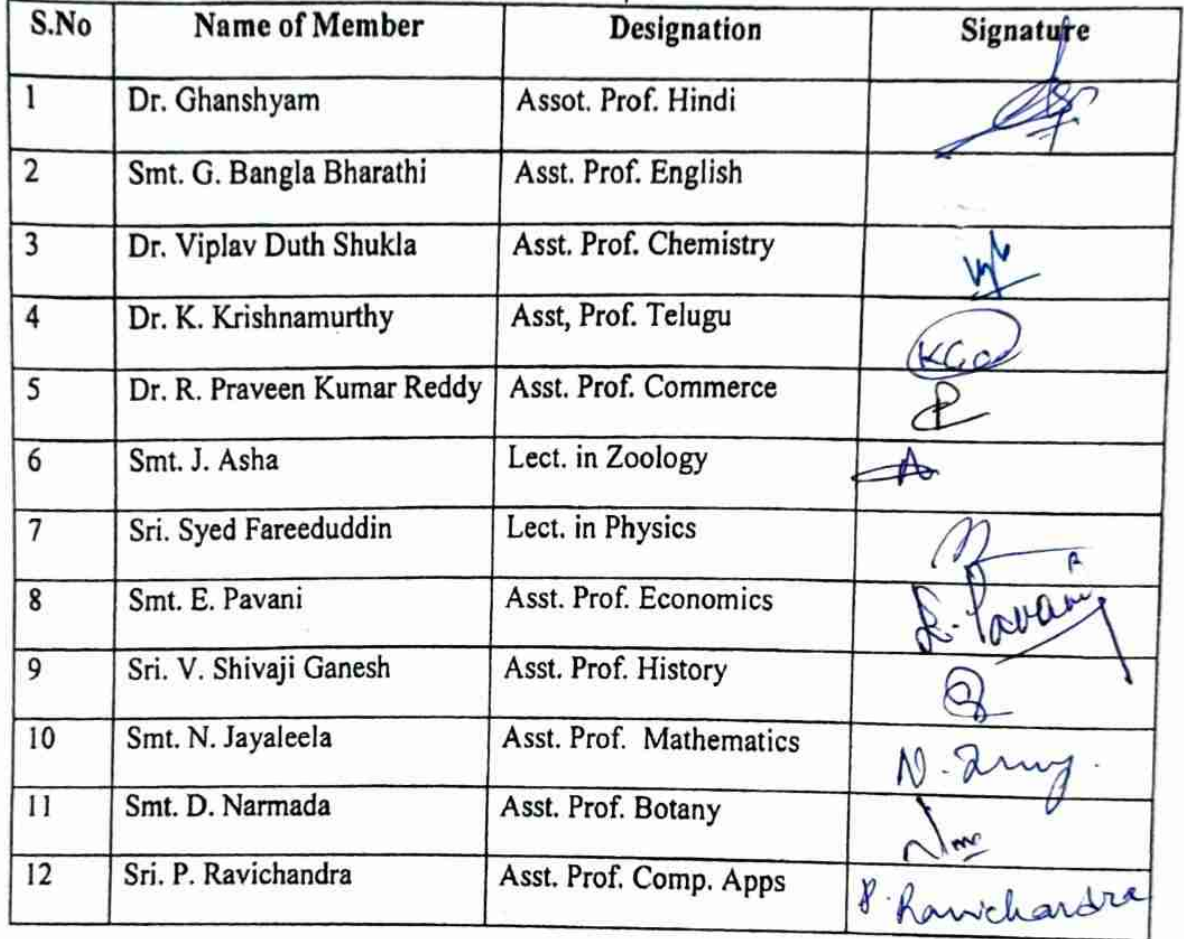 S.No Name of Member Designation Signature
1 Dr. Ghanshyam Assot. Prof. Hindi
2 Smt. G. Bangla Bharathi Asst. Prof. English
3 Dr. Viplav Duth Shukla Asst. Prof. Chemistry
4 Dr. K. Krishnamurthy Asst, Prof. Telugu
5 Dr. R. Praveen Kumar Reddy Asst. Prof. Commerce
6 Smt. J. Asha Lect. in Zoology
7 Sri. Syed Fareeduddin Lect. in Physics
8 Smt. E. Pavani Asst. Prof. Economics E. Pavani
9 Sri. V. Shivaji Ganesh Asst. Prof. History
10 Smt. N. Jayaleela Asst. Prof. Mathematics
11 Smt. D. Narmada Asst. Prof. Botany
12 Sri. P. Ravichandra Asst. Prof. Comp. Apps P. Ravichandra